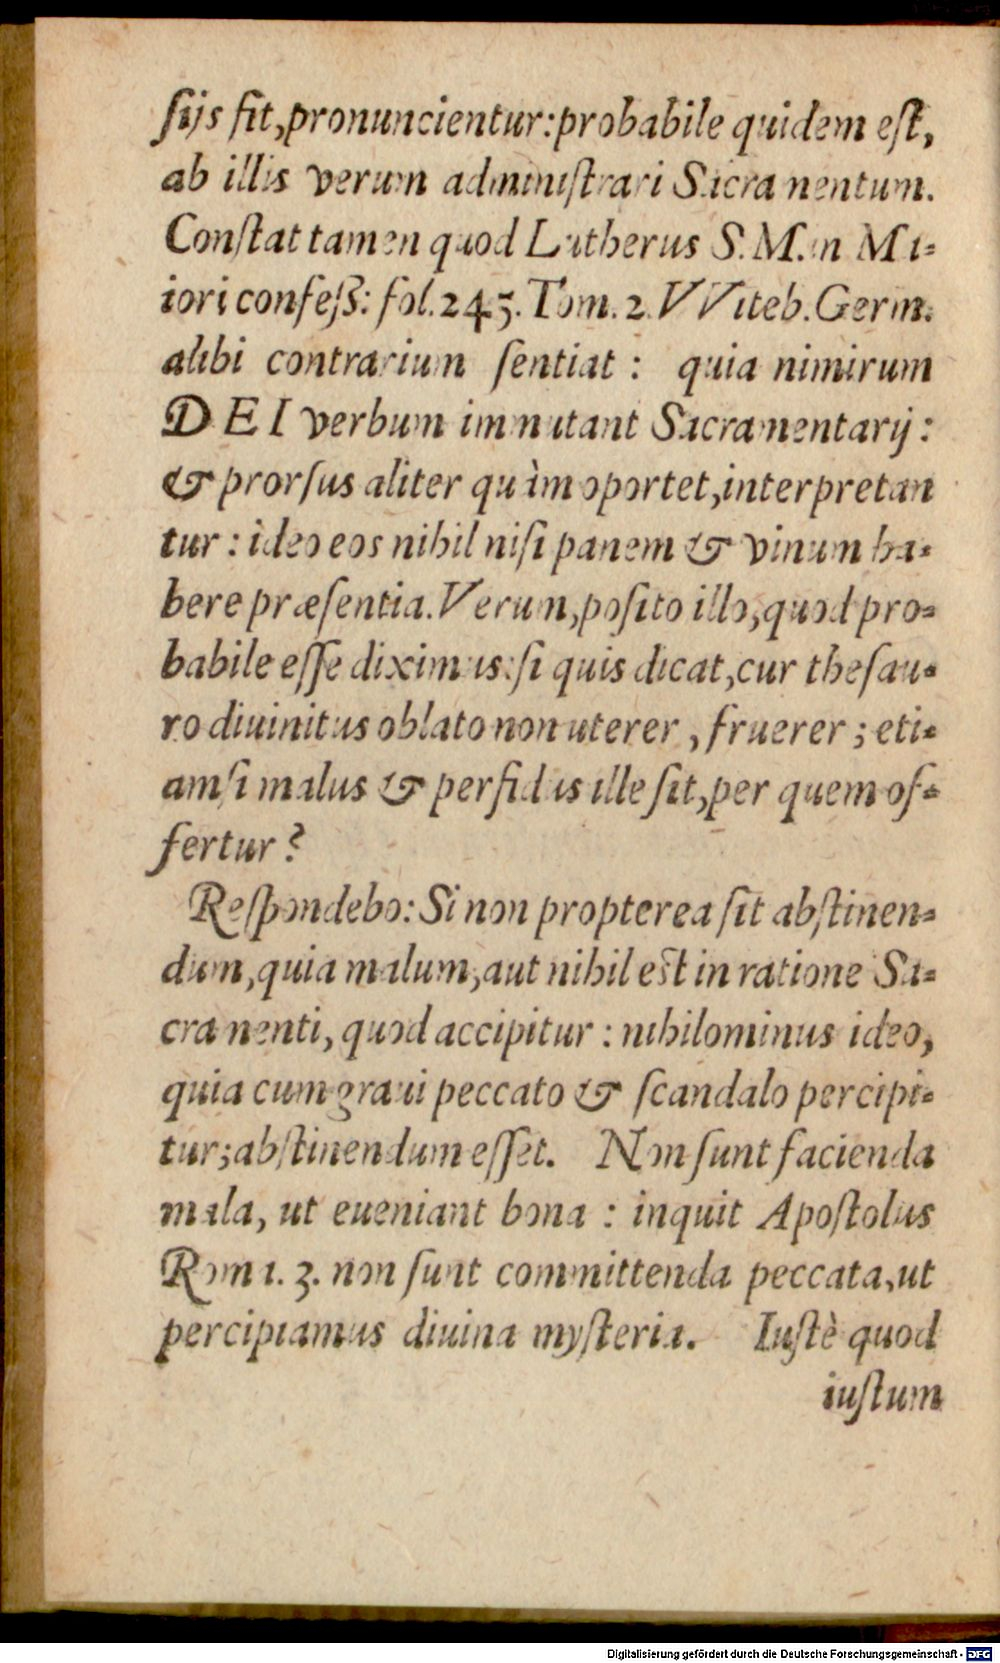 ſijs fit, pronuncientur: probabile quidem eſt,
ab illis verum adminiſtrari Sacramentum.
Conſtat tamen quod Lutherus S. M. in Ma-
iori confeß: fol. 245. Tom. 2. VViteb. Germ.
alibi contrarium ſentiat: quia nimirum
DEI verbum immutant Sacramentarij:
& prorſus aliter quàm oportet, interpretan
tur: ideo eos nihil niſi panem & vinum ha-
bere præſentia. Verum, poſito illo, quod pro-
babile eſſe diximus: ſi quis dicat, cur theſau-
ro diuinitus oblato non uterer, fruerer; eti-
amſi malus & perfidus ille ſit, per quem of-
fertur?
Reſpondebo: Si non propterea ſit abſtinen-
dum, quia malum, aut nihil eſt in ratione Sa-
cramenti, quod accipitur: nihilominus ideo,
quia cum graui peccato & ſcandalo percipi-
tur; abſtinendum eſſet. Non ſunt facienda
mala, ut eueniant bona: inquit Apoſtolus
Rom 1. 3. non ſunt committenda peccata, ut
percipiamus diuina myſteria. Iuſtè quod
iuſtum
Digitalisierung gefördert durch die Deutsche Forschungsgemeinschaft - DFG